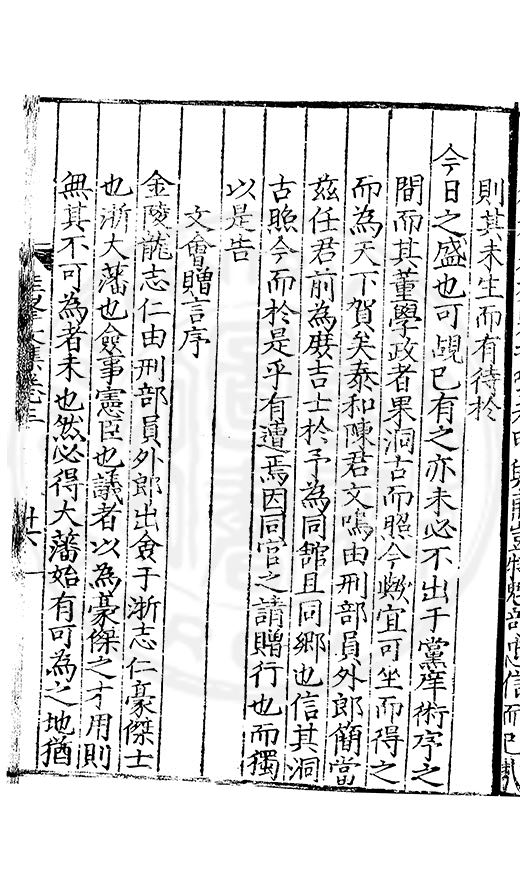 則其未生而有待於
今日之盛也可覘已有之亦未必不出于黨庠術序之
間而其董學政者果洞古而照今歟宜可坐而得之
而為天下賀矣泰和陳君文鳴由刑部員外郎簡當
茲任君前為庶吉士於予為同館且同鄉也信其洞
古照今而於是乎有遭焉因同官之請贈行也而獨
以是告
文會贈言序
金陵龍志仁由刑部員外郎出僉于浙志仁豪傑士
也浙大藩也僉事憲臣也議者以為豪傑之才用則
無其不可為者未也然必得大藩始有可為之地猶
文集卷三
十六